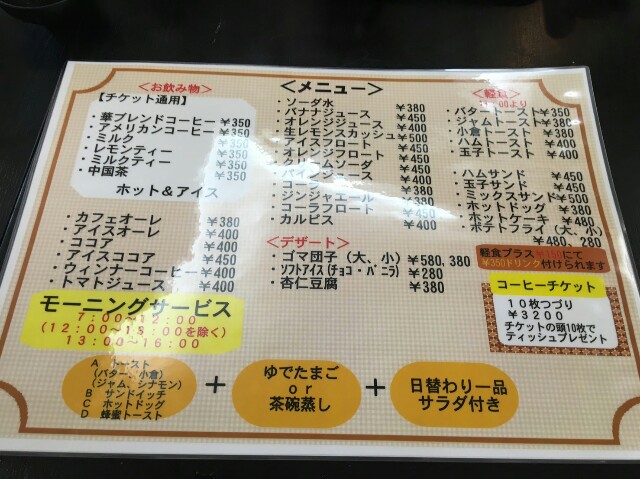 <お飲み物>
【チケット通用】
・華ブレンドコーヒー ¥350
・アメリカンコーヒー ¥350
・ミルク ¥350
・レモンティー ¥350
・ミルクティー ¥350
・中国茶 ¥350
ホット＆アイス
・カフェオーレ ¥380
・アイスオーレ ¥400
・ココア ¥400
・アイスココア ¥450
・ウィンナーコーヒー ¥400
・トマトジュース ¥400
<メニュー>
・ソーダ水 ¥380
・バナナジュース ¥450
・オレンジジュース ¥400
・生レモンスカッシュ ¥500
・アイスフロート ¥450
・オレンジフロート ¥450
・クリームソーダ
・パインジュース
・コーラ
・ジンジャエール
・コーラフロート ¥450
・カルピス ¥400
<デザート>
・ゴマ団子（大、小） ¥580, 380
・ソフトアイス（チョコ・バニラ） ¥280
・杏仁豆腐 ¥380
<軽食>
00より
・バタートースト ¥350
・ジャムトースト ¥380
・小倉トースト ¥380
・ハムトースト ¥400
・玉子トースト ¥400
・ハムサンド ¥450
・玉子サンド ¥450
・ミックスサンド ¥500
・ホットドッグ ¥380
・ホットケーキ ¥480
・ポテトフライ（大、小）
¥480, 280
軽食プラス にて
¥350ドリンク 付けられます
コーヒーチケット
１０枚つづり
¥３２００
チケットの頭10枚で
ティッシュプレゼント
モーニングサービス
７：００〜１２：００
（１２：００〜１３：００を除く）
１３：００〜１６：００
Ａ トースト
（バター、小倉）
（ジャム、シナモン）
Ｂ サンドイッチ
Ｃ ホットドッグ
Ｄ 蜂蜜トースト
＋
ゆでたまご
ｏｒ
茶碗蒸し
＋
日替わり一品
サラダ付き